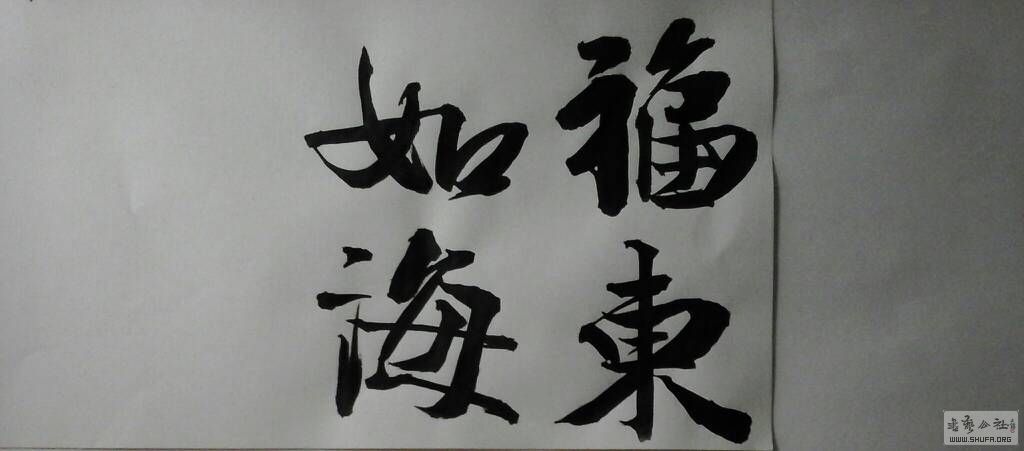 福東
如海
書藝公社
WWW.SHUFA.ORG